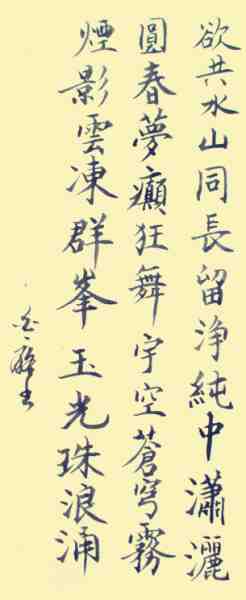 欲共水山同長留浄純中瀟灑
圓春夢癲狂舞宇空蒼穹霧
煙影雲凍群峯玉光珠浪涌